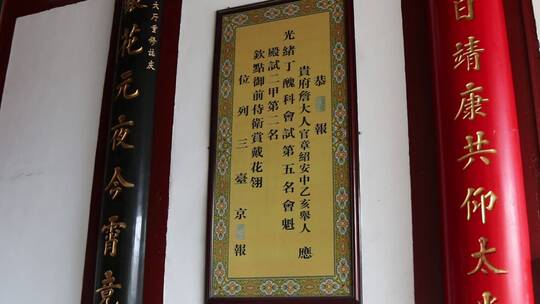 恭報
貴府詹大人官章紹安中乙亥舉人應
光緒丁醜科會試第五名會魁
殿試二甲第二名
欽點御前侍衛賞戴花翎
位列三臺京報
靖康共仰太
花元夜今宵
大斤重修誌